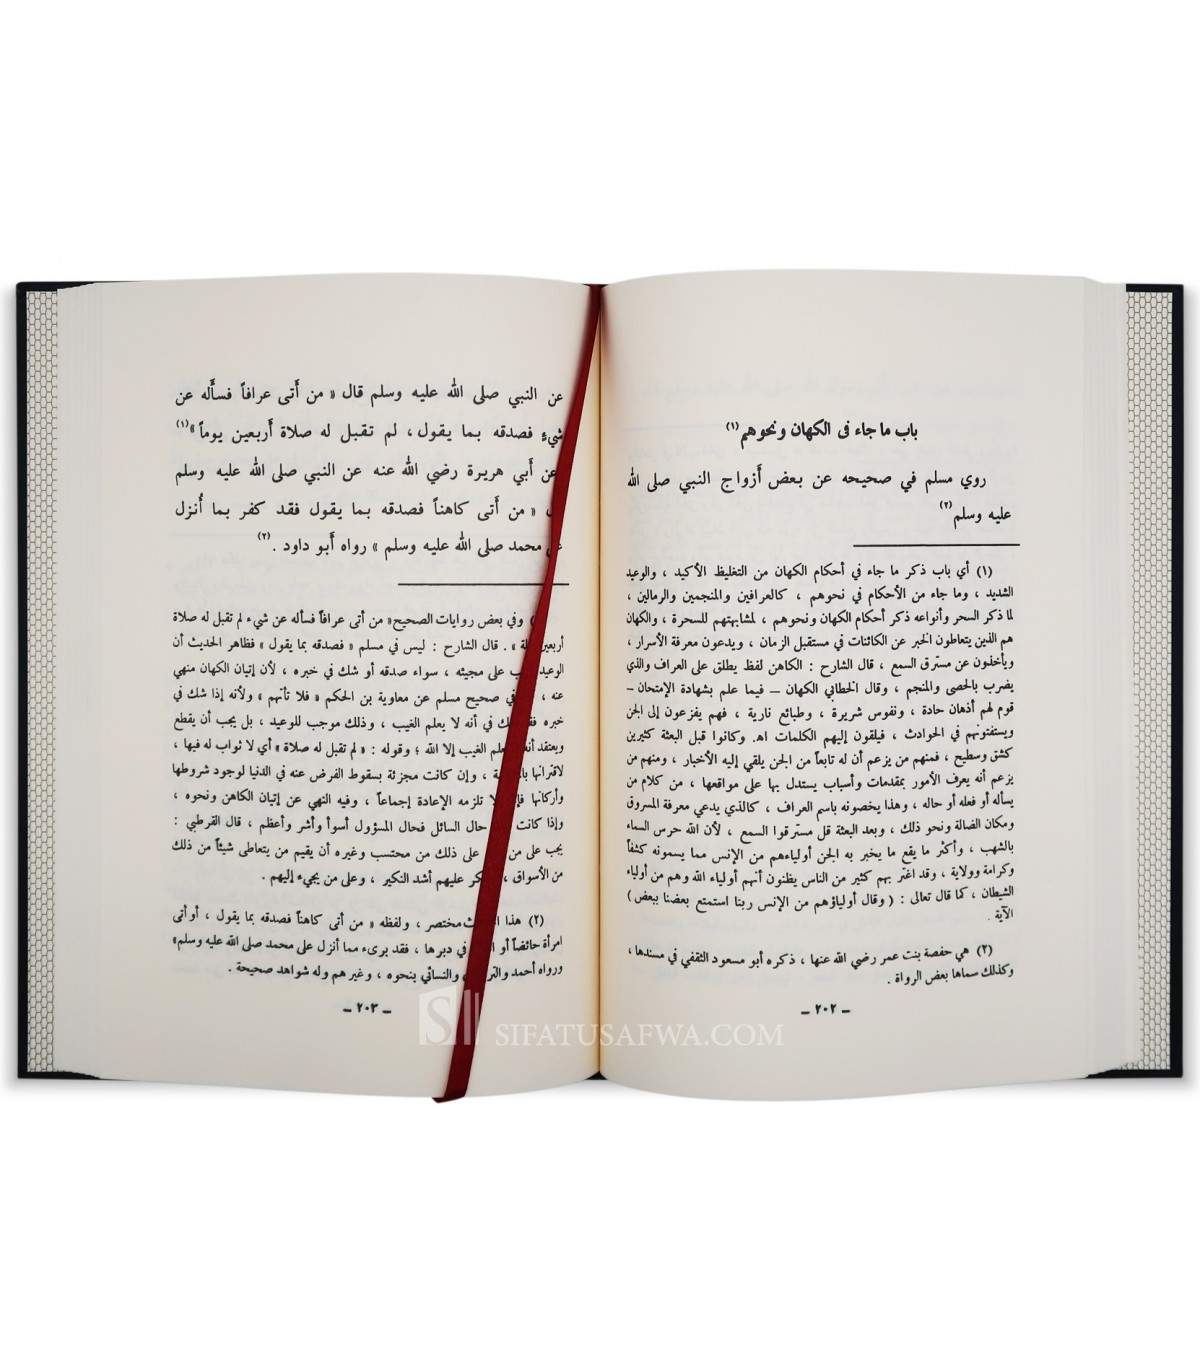 باب ما جاء في الكهان ونحوهم (١)
روي مسلم في صحيحه عن بعض أزواج النبي صلى الله
عليه وسلم (٢)
(١) أي باب ذكر ما جاء في أحكام الكهان من التغليظ الأكيد ، والوعيد
الشديد ، وما جاء من الأحكام في نحوهم ، كالعرافين والمنجمين والرمالين ،
لما ذكر السحر وأنواعه ذكر أحكام الكهان ونحوهم ، لمشابهتهم للسحرة ، والكهان
هم الذين يتعاطون الخبر عن الكائنات في مستقبل الزمان ، ويدعون معرفة الأسرار ،
ويأخذون عن مسترق السمع ، قال الشارح : الكاهن لفظ يطلق على العراف والذي
يضرب بالحصى والمنجم ، وقال الخطابي الكهان – فيما علم بشهادة الإمتحان –
قوم لهم أذهان حادة ، ونفوس شريرة ، وطبائع نارية ، فهم يفزعون إلى الجن
ويستفتونهم في الحوادث ، فيلقون إليهم الكلمات اه‍. وكانوا قبل البعثة كثيرين
كشق وسطيح ، فمنهم من يزعم أن له تابعاً من الجن يلقي إليه الأخبار ، ومنهم من
يزعم أنه يعرف الأمور بمقدمات وأسباب يستدل بها على مواقعها ، من كلام من
يسأله أو فعله أو حاله ، وهذا يخصونه باسم العراف ، كالذي يدعي معرفة المسروق
ومكان الضالة ونحو ذلك ، وبعد البعثة قل مسترقوا السمع ، لأن الله حرس السماء
بالشهب ، وأكثر ما يقع ما يخبر به الجن أولياءهم من الإنس مما يسمونه كشفاً
وكرامة وولاية ، وقد اغتر بهم كثير من الناس يظنون أنهم أولياء الله وهم من أولياء
الشيطان ، كما قال تعالى : ( وقال أولياؤهم من الإنس ربنا استمتع بعضنا ببعض )
الآية .
(٢) هي حفصة بنت عمر رضي الله عنها ، ذكره أبو مسعود الثقفي في مسندها ،
وكذلك سماها بعض الرواة .
– ٢٠٢ –
عن النبي صلى الله عليه وسلم قال « من أتى عرافاً فسأله عن
شيءٍ فصدقه بما يقول، لم تقبل له صلاة أربعين يوماً » (١)
عن أبي هريرة رضي الله عنه عن النبي صلى الله عليه وسلم
« من أتى كاهناً فصدقه بما يقول فقد كفر بما أُنزل
محمد صلى الله عليه وسلم » رواه أبو داود . (٢)
وفي بعض روايات الصحيح « من أتى عرافاً فسأله عن شيء لم تقبل له صلاة
» . قال الشارح : ليس في مسلم « فصدقه بما يقول » فظاهر الحديث أن
الوعيد على مجيئه ، سواء صدقه أو شك في خبره ، لأن إتيان الكهان منهي
عنه ، في صحيح مسلم عن معاوية بن الحكم « فلا تأتهم » ولأنه إذا شك في
خبره في أنه لا يعلم الغيب ، وذلك موجب للوعيد ، بل يجب أن يقطع
ويعتقد الغيب إلا الله ؛ وقوله : « لم تقبل له صلاة » أي لا ثواب له فيها ،
لاقترانها ، وإن كانت مجزئة بسقوط الفرض عنه في الدنيا لوجود شروطها
وأركانها تلزمه الإعادة إجماعاً ، وفيه النهي عن إتيان الكاهن ونحوه ،
وإذا كانت حال السائل فحال المسؤول أسوأ وأشر وأعظم ، قال القرطبي :
يجب على من على ذلك من محتسب وغيره أن يقيم من يتعاطى شيئاً من ذلك
من الأسواق ، عليهم أشد النكير ، وعلى من يجيء إليهم .
(٢) هذا مختصر ، ولفظه « من أتى كاهناً فصدقه بما يقول ، أو أتى
امرأة حائضاً أو في دبرها ، فقد برىء مما أنزل على محمد صلى الله عليه وسلم»
ورواه أحمد والنسائي بنحوه ، وغيرهم وله شواهد صحيحة .
– ٢٠٣ –
SIFATUSAFWA.COM